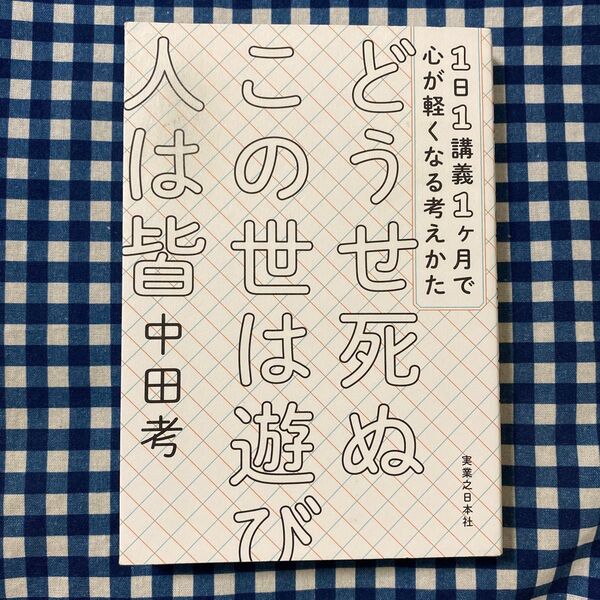 1日1講義1ヶ月で
心が軽くなる考えかた
どうせ死ぬ
この世は遊び
人は皆
中田考
実業之日本社